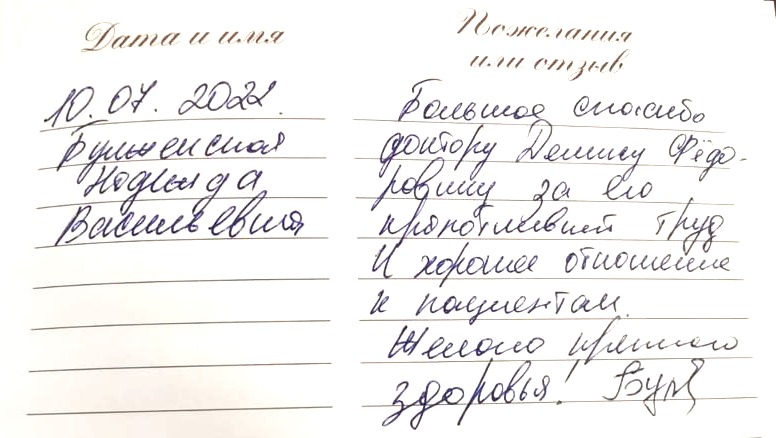 Дата и имя
10.07.2022.
Надежда
Васильевна
Пожелания
или отзыв
Большое спасибо
доктору Денису Фёдо-
ровичу за его
кропотливый труд
И хорошее отношение
к пациентам.
Желаю крепкого
здоровья!